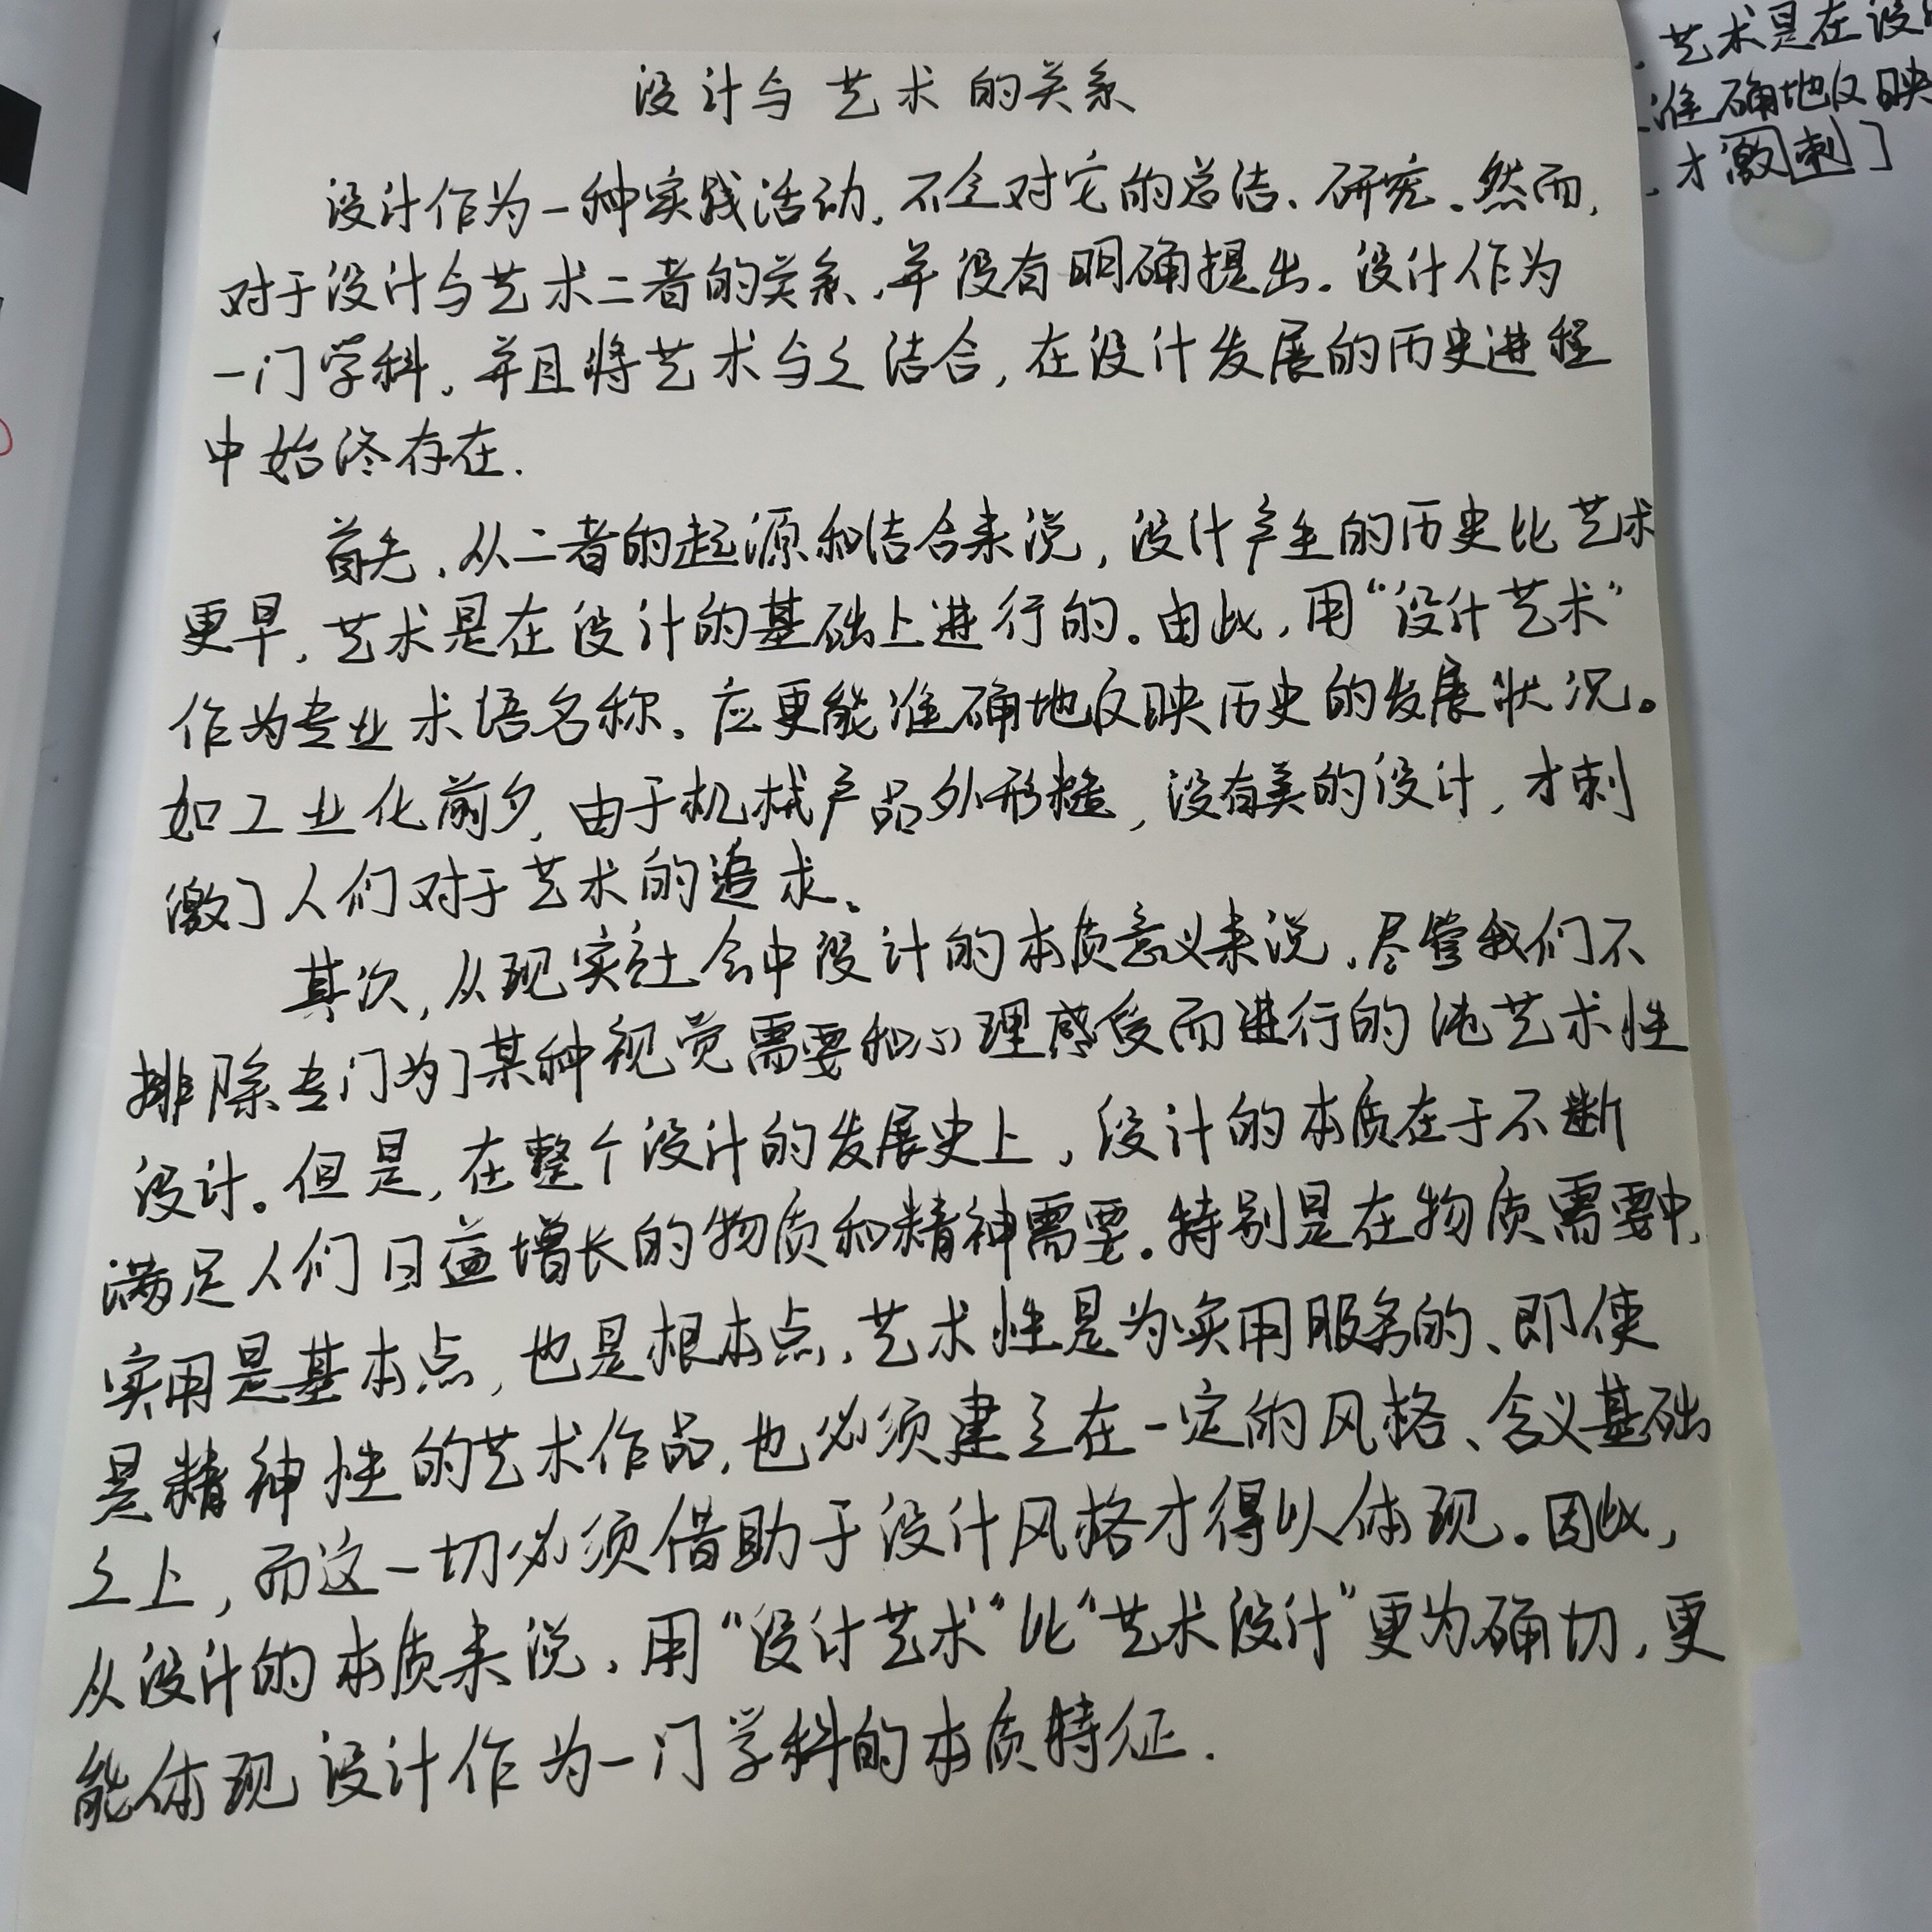 设计与艺术的关系
设计作为一种实践活动,不乏对它的总结、研究。然而,
对于设计与艺术二者的关系,并没有明确提出。设计作为
一门学科,并且将艺术与之结合,在设计发展的历史进程
中始终存在.
首先,从二者的起源和结合来说,设计产生的历史比艺术
更早,艺术是在设计的基础上进行的。由此,用“设计艺术”
作为专业术语名称,应更能准确地反映历史的发展状况。
如工业化前夕,由于机械产品外形糙,没有美的设计,才刺
激了人们对于艺术的追求。
其次,从现实社会中设计的本质意义来说,尽管我们不
排除专门为了某种视觉需要和心理感受而进行的纯艺术性
设计。但是,在整个设计的发展史上,设计的本质在于不断
满足人们日益增长的物质和精神需要。特别是在物质需要中,
实用是基本点,也是根本点,艺术性是为实用服务的、即使
是精神性的艺术作品,也必须建立在一定的风格、含义基础
之上,而这一切必须借助于设计风格才得以体现。因此,
从设计的本质来说,用“设计艺术”比“艺术设计”更为确切,更
能体现设计作为一门学科的本质特征.
艺术是在设
准确地反映
才激刺了